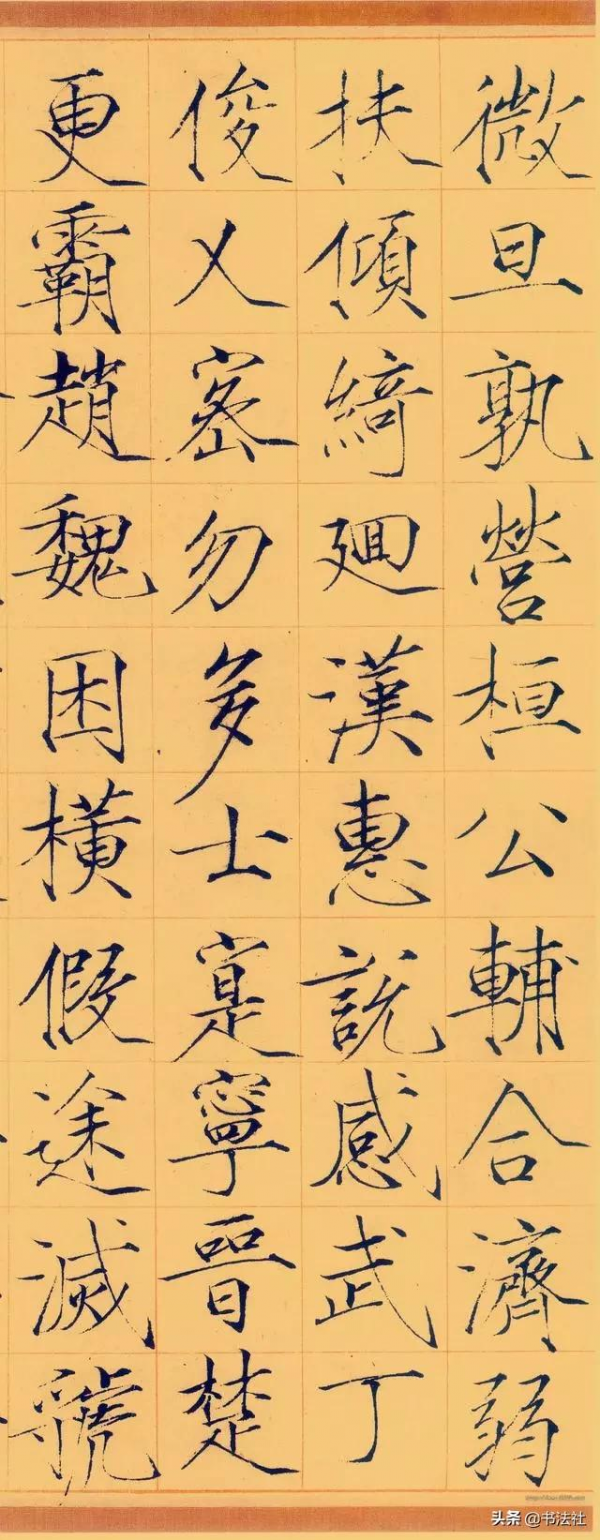 微旦孰營桓公輔合濟弱
扶傾綺廻漢惠說感武丁
俊乂密勿多士寔寧晉楚
更霸趙魏困橫假途滅虢
头条 @书法社